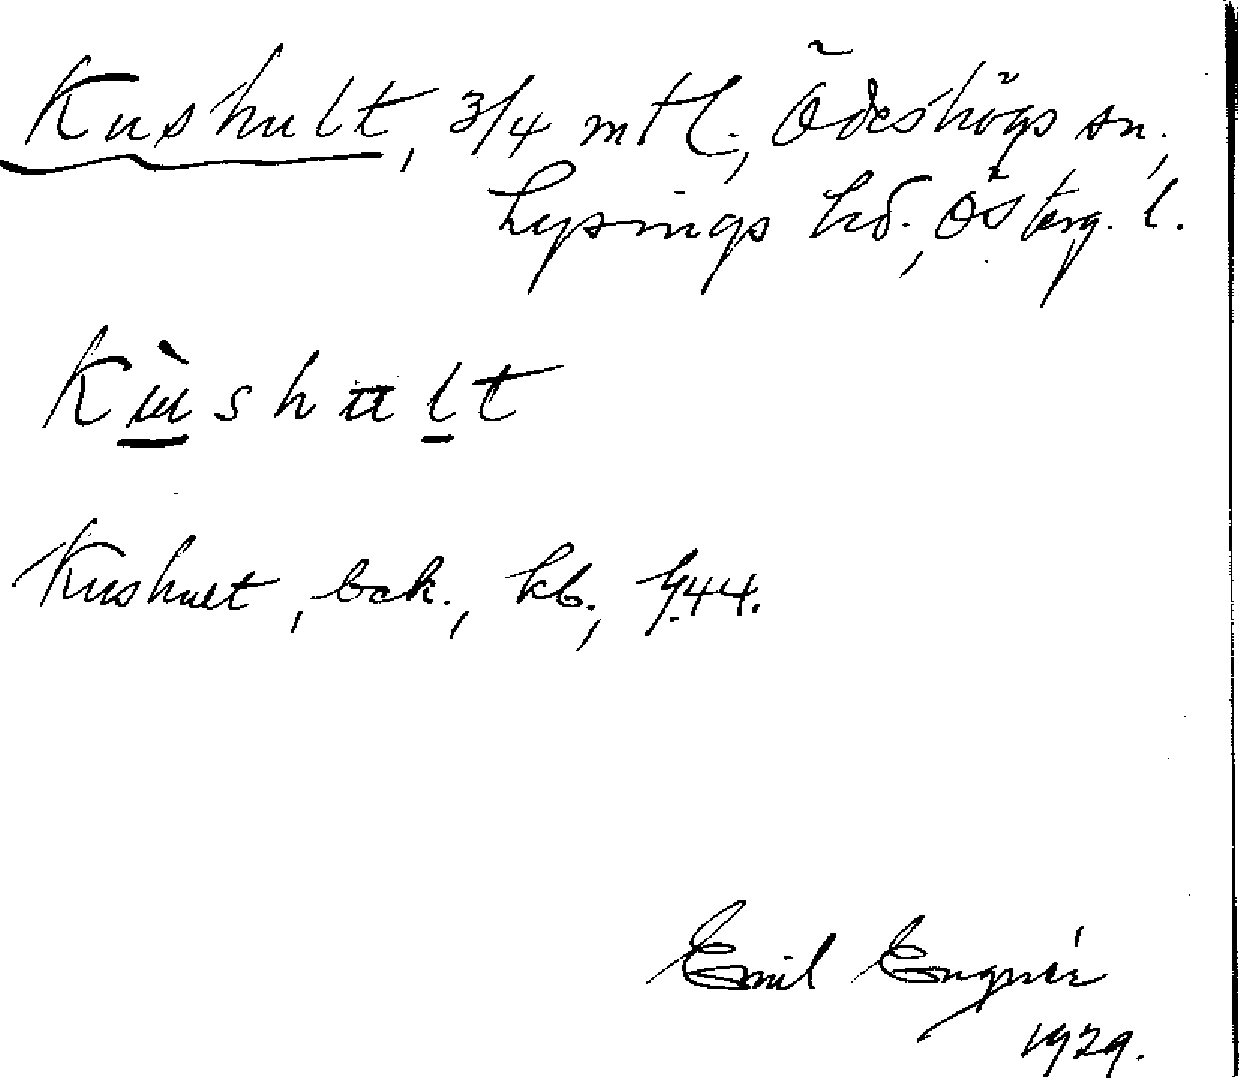 Kushult, 3/4 mtl., Ödeshögs sn,
Lysings hd., Österg. l.
Kùshult
Kushult, bck., kb.,
Emil Engnér
1929.